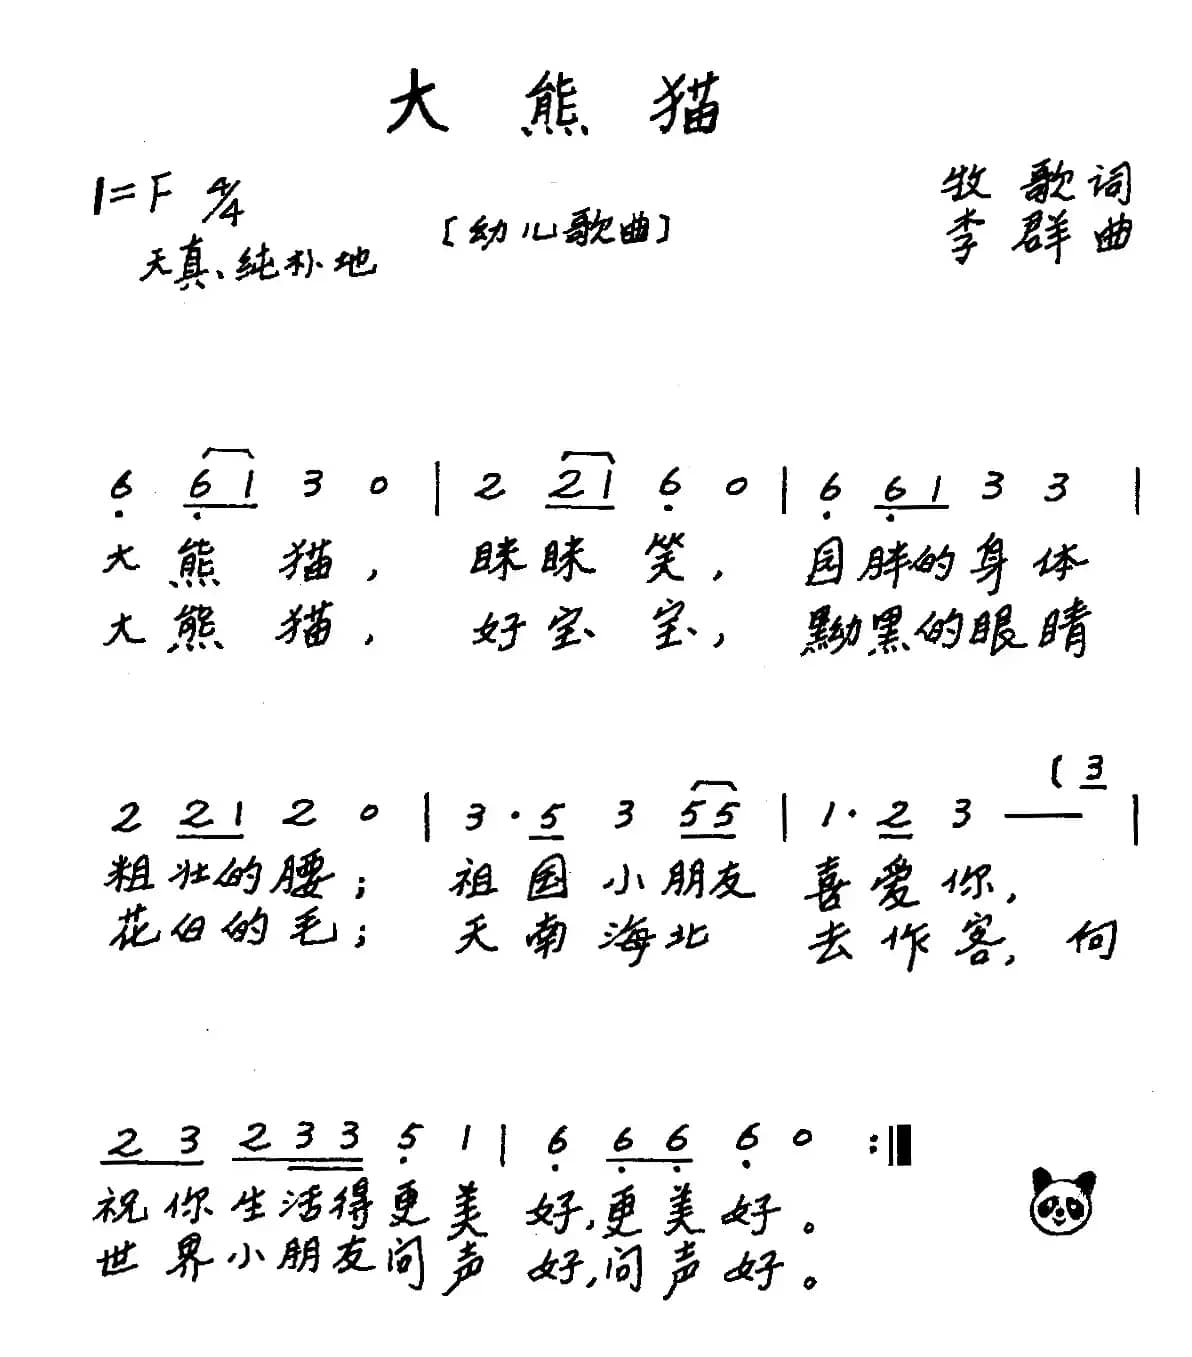 大熊猫
1=F 4/4
牧歌词
[幼儿歌曲]
李群曲
天真、纯朴地
6̣ 6̣1 3 0 | 2 21 6̣ 0 | 6̣ 6̣1 3 3 |
大熊猫，眯眯笑，园胖的身体
大熊猫，好宝宝，黝黑的眼睛
2 21 2 0 | 3·5 3 55 | 1·2 3 — (3 |
粗壮的腰；祖国小朋友喜爱你，
花白的毛；天南海北去作客，向
23 233 5̣ 1 | 6̣ 6̣6̣ 6̣ 0 :‖
祝你生活得更美好，更美好。
世界小朋友问声好，问声好。